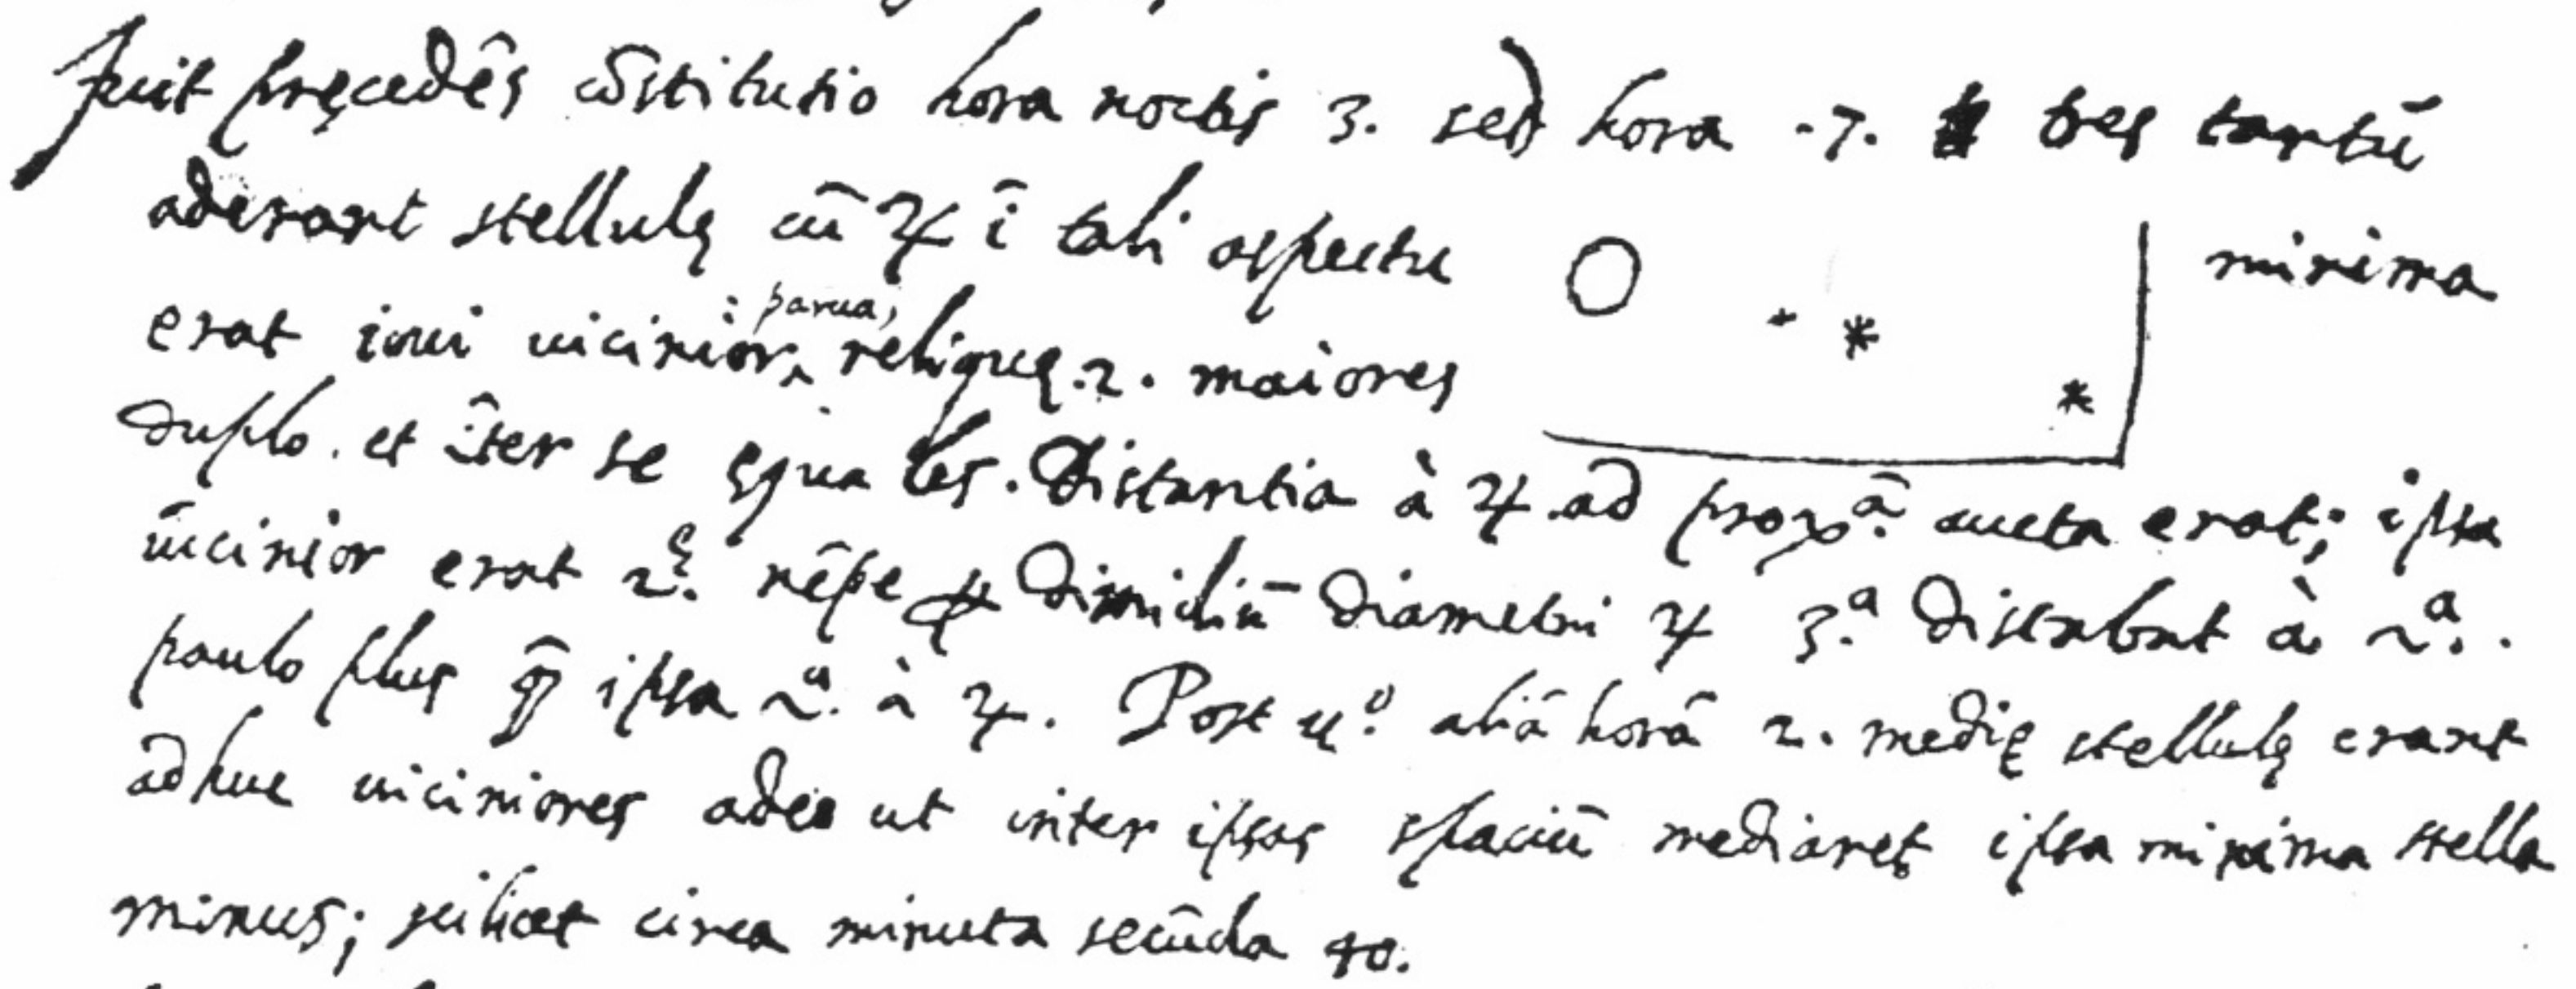 fuit pręcedēs cōstitutio hora noctis 3. sed hora .7. tres tantū
aderant stellulę cū ♃ ī tali aspectu
minima
erat ioui uicinior ‸ : parua, reliquę .2. maiores
duplo. et īter se ęquales. Distantia à ♃ ad prox.ā aucta erat; ipsa
uicinior erat 2.ę nēpe dimidiū diametri ♃ 3.a distabat à 2.a.
paulo plus q̄ ipsa 2.a à ♃. Post u.o aliā horā 2. medię stellulę erant
adhuc uiciniores adeo ut inter ipsas spaciū mediaret ipsa minima stella
minus; scilicet circa minuta secūda 40.